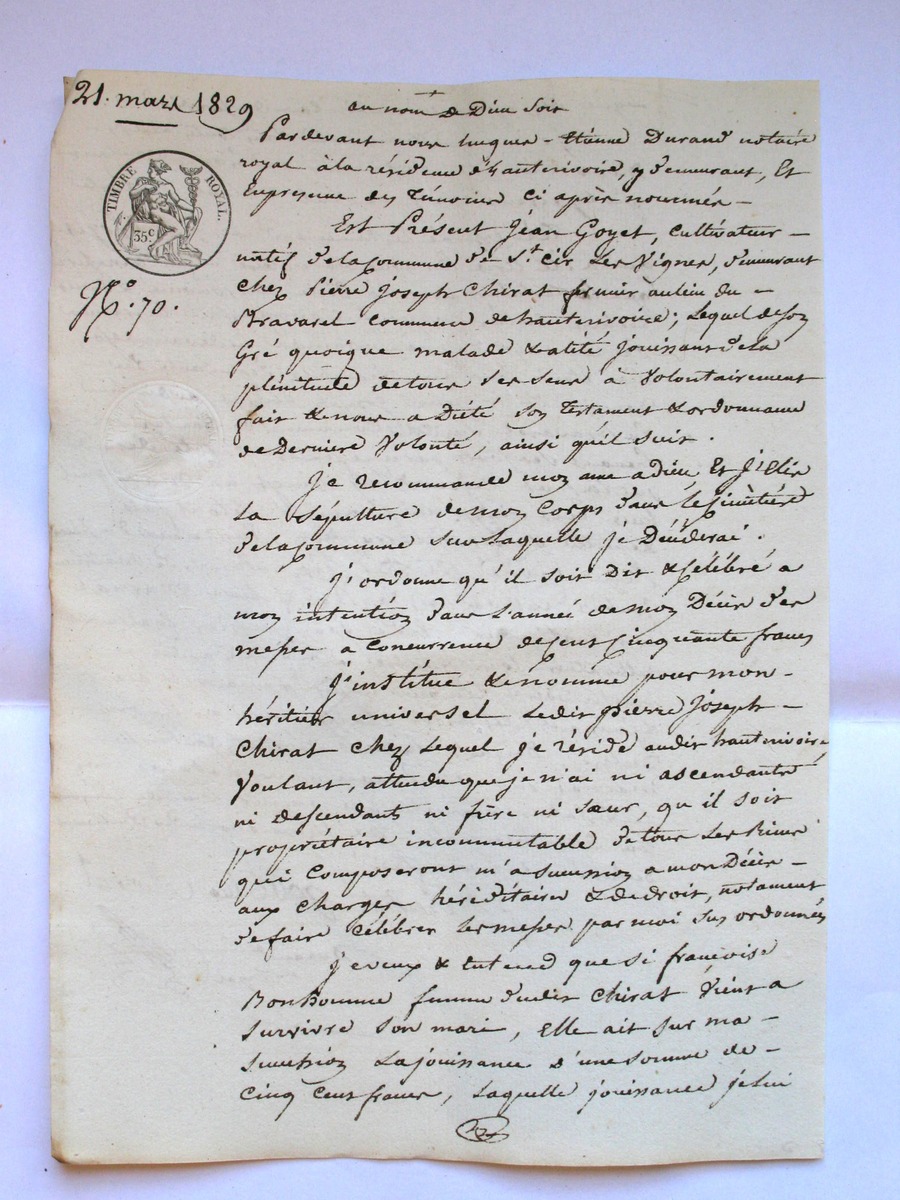 21. mars 1829
au nom de Dieu soit
Pardevant nous hugues - Etienne Durand notaire
royal à la résidence d'hauterivoire, y demeurant, Et
En presence des Témoins ci après nommés -
TIMBRE ROYAL.
35c
Est Présent Jean Goyet, cultivateur -
natif de la commune de St. Cir les Vignes, demeurant
N.o 70.
chez Pierre Joseph Chirat fermier au lieu du -
Bravarel commune de hauterivoire; lequel de son
Gré quoique malade & alité jouissant de la
plénitude de tous ses sens à Volontairement
fait & nous a dicté son testament & ordonnance
de Derniere Volonté, ainsi qu'il suit.
je recommande mon ame a Dieu, Et j'Elis
La sépulture de mon Corps dans le cimétière
de la commune sur laquelle je Décéderai.
j'ordonne qu'il soit Dit & Célébré a
mon intention dans l'année de mon Décès des
messes a concurrence de cent cinquante francs
j'institue & nomme pour mon -
héritier universel ledit pierre joseph -
Chirat chez lequel je réside audit hauterivoire,
Voulant, attendu que je n'ai ni ascendants
ni descendants ni frère ni sœur, qu'il soit
propriétaire incommutable de tous les Biens
qui composeront m'a succession a mon Décès -
aux charges héréditaires & de droit, notament
de faire célébrer les messes par moi sus ordonnées
je veux & Entend que si françoise
Bonhomme femme dudit Chirat Vient a
survivre son mari, Elle ait sur ma -
succession La jouissance d'une somme de -
cinq cent francs, laquelle jouissance je lui